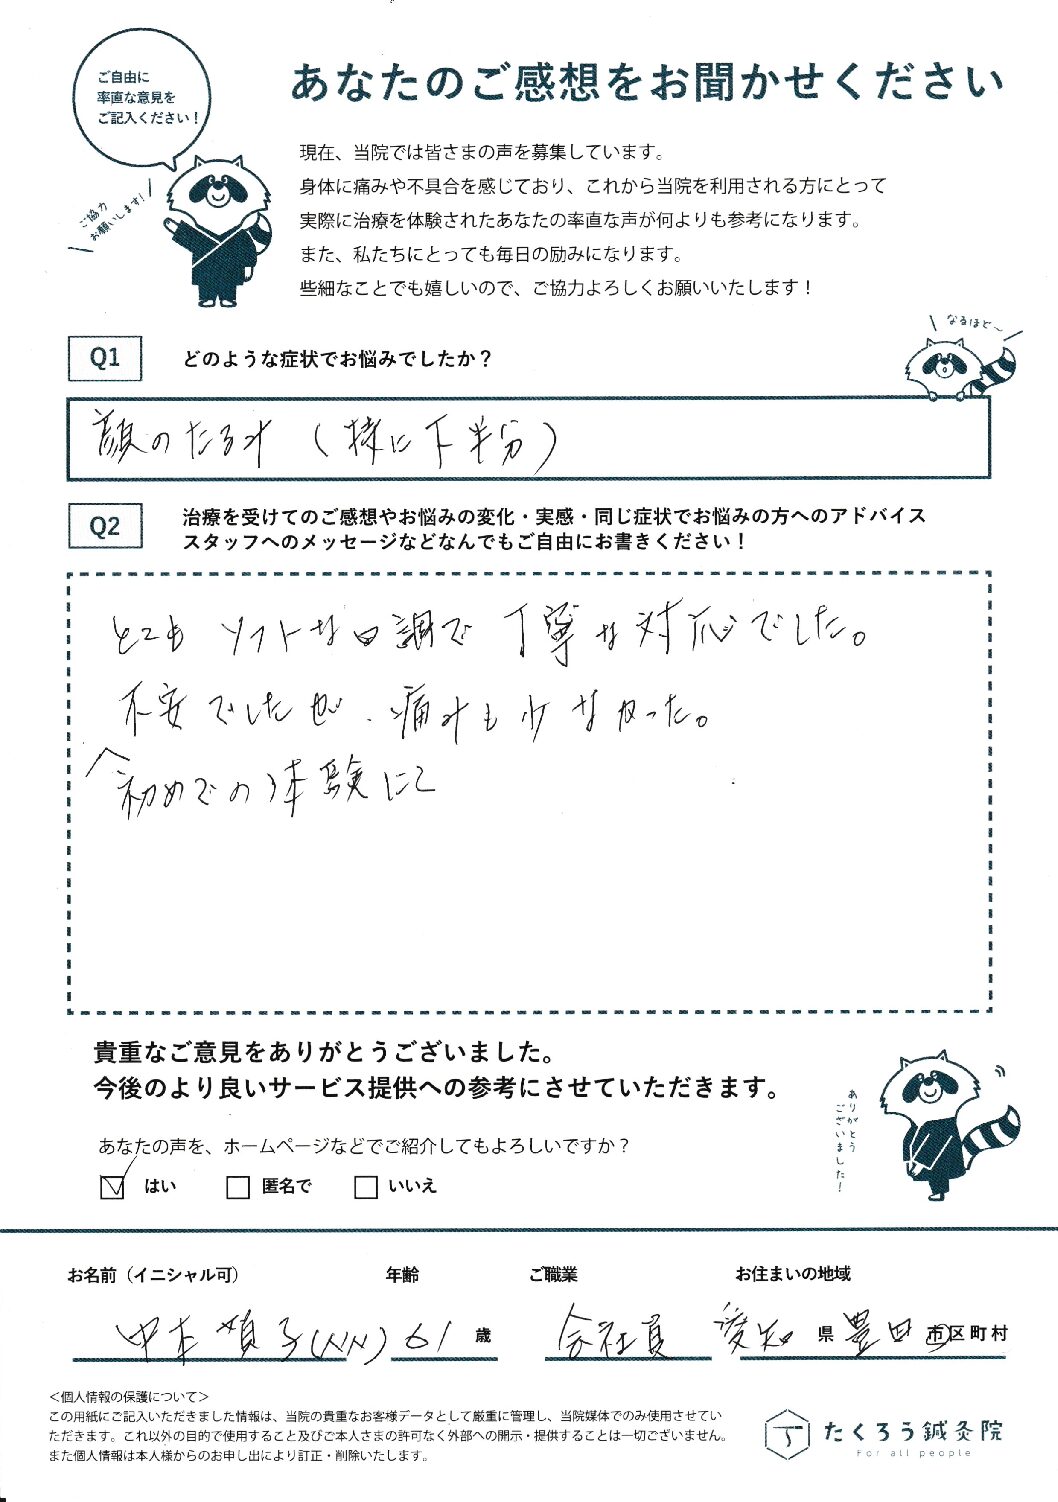 ご自由に
率直な意見を
ご記入ください！
あなたのご感想をお聞かせください
ご協力
お願いします！
現在、当院では皆さまの声を募集しています。
身体に痛みや不具合を感じており、これから当院を利用される方にとって
実際に治療を体験されたあなたの率直な声が何よりも参考になります。
また、私たちにとっても毎日の励みになります。
些細なことでも嬉しいので、ご協力よろしくお願いいたします！
なるほど〜
Q1 どのような症状でお悩みでしたか？
顔のたるみ（特に下半分）
Q2 治療を受けてのご感想やお悩みの変化・実感・同じ症状でお悩みの方へのアドバイス
スタッフへのメッセージなどなんでもご自由にお書きください！
とてもソフトな口調で丁寧な対応でした。
不安でしたが、痛みも少なかった。
初めての体験にて
貴重なご意見をありがとうございました。
今後のより良いサービス提供への参考にさせていただきます。
ありがとう
ございました！
あなたの声を、ホームページなどでご紹介してもよろしいですか？
はい 匿名で いいえ
お名前（イニシャル可） 年齢 ご職業 お住まいの地域
中本 子(NN) 61 歳 会社員 愛知 県 豊田 市区町村
＜個人情報の保護について＞
この用紙にご記入いただきました情報は、当院の貴重なお客様データとして厳重に管理し、当院媒体でのみ使用させてい
ただきます。これ以外の目的で使用すること及びご本人さまの許可なく外部への開示・提供することは一切ございません。
また個人情報は本人様からのお申し出により訂正・削除いたします。
たくろう鍼灸院
For all people